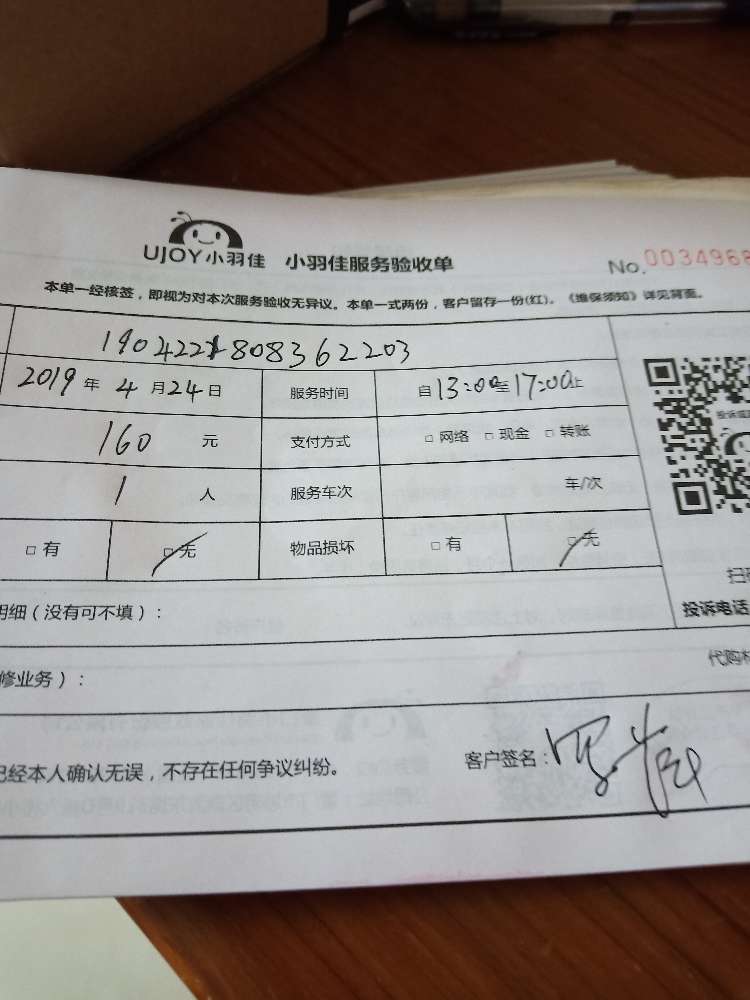 UJOY小羽佳 小羽佳服务验收单 No.0034968
本单一经核签，即视为对本次服务验收无异议。本单一式两份，客户留存一份(红)。《维保须知》详见背面。
1904221808362203
2019年4月24日 服务时间 自13:00至17:00止
160元 支付方式 □网络 □现金 □转账
投诉或
1人 服务车次 车/次
□有 □无 物品损坏 □有 □无
扫码
明细（没有可不填）： 投诉电话
修业务）： 代购
已经本人确认无误，不存在任何争议纠纷。 客户签名：